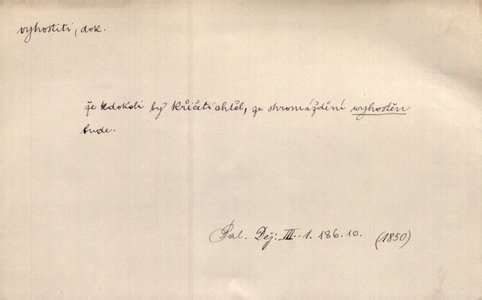 vyhostiti, dok.
že kdokoli by křičeti chtěl, ze shromáždění vyhostěn
bude.
Pal. Děj. III.-1. 186.10. (1850)